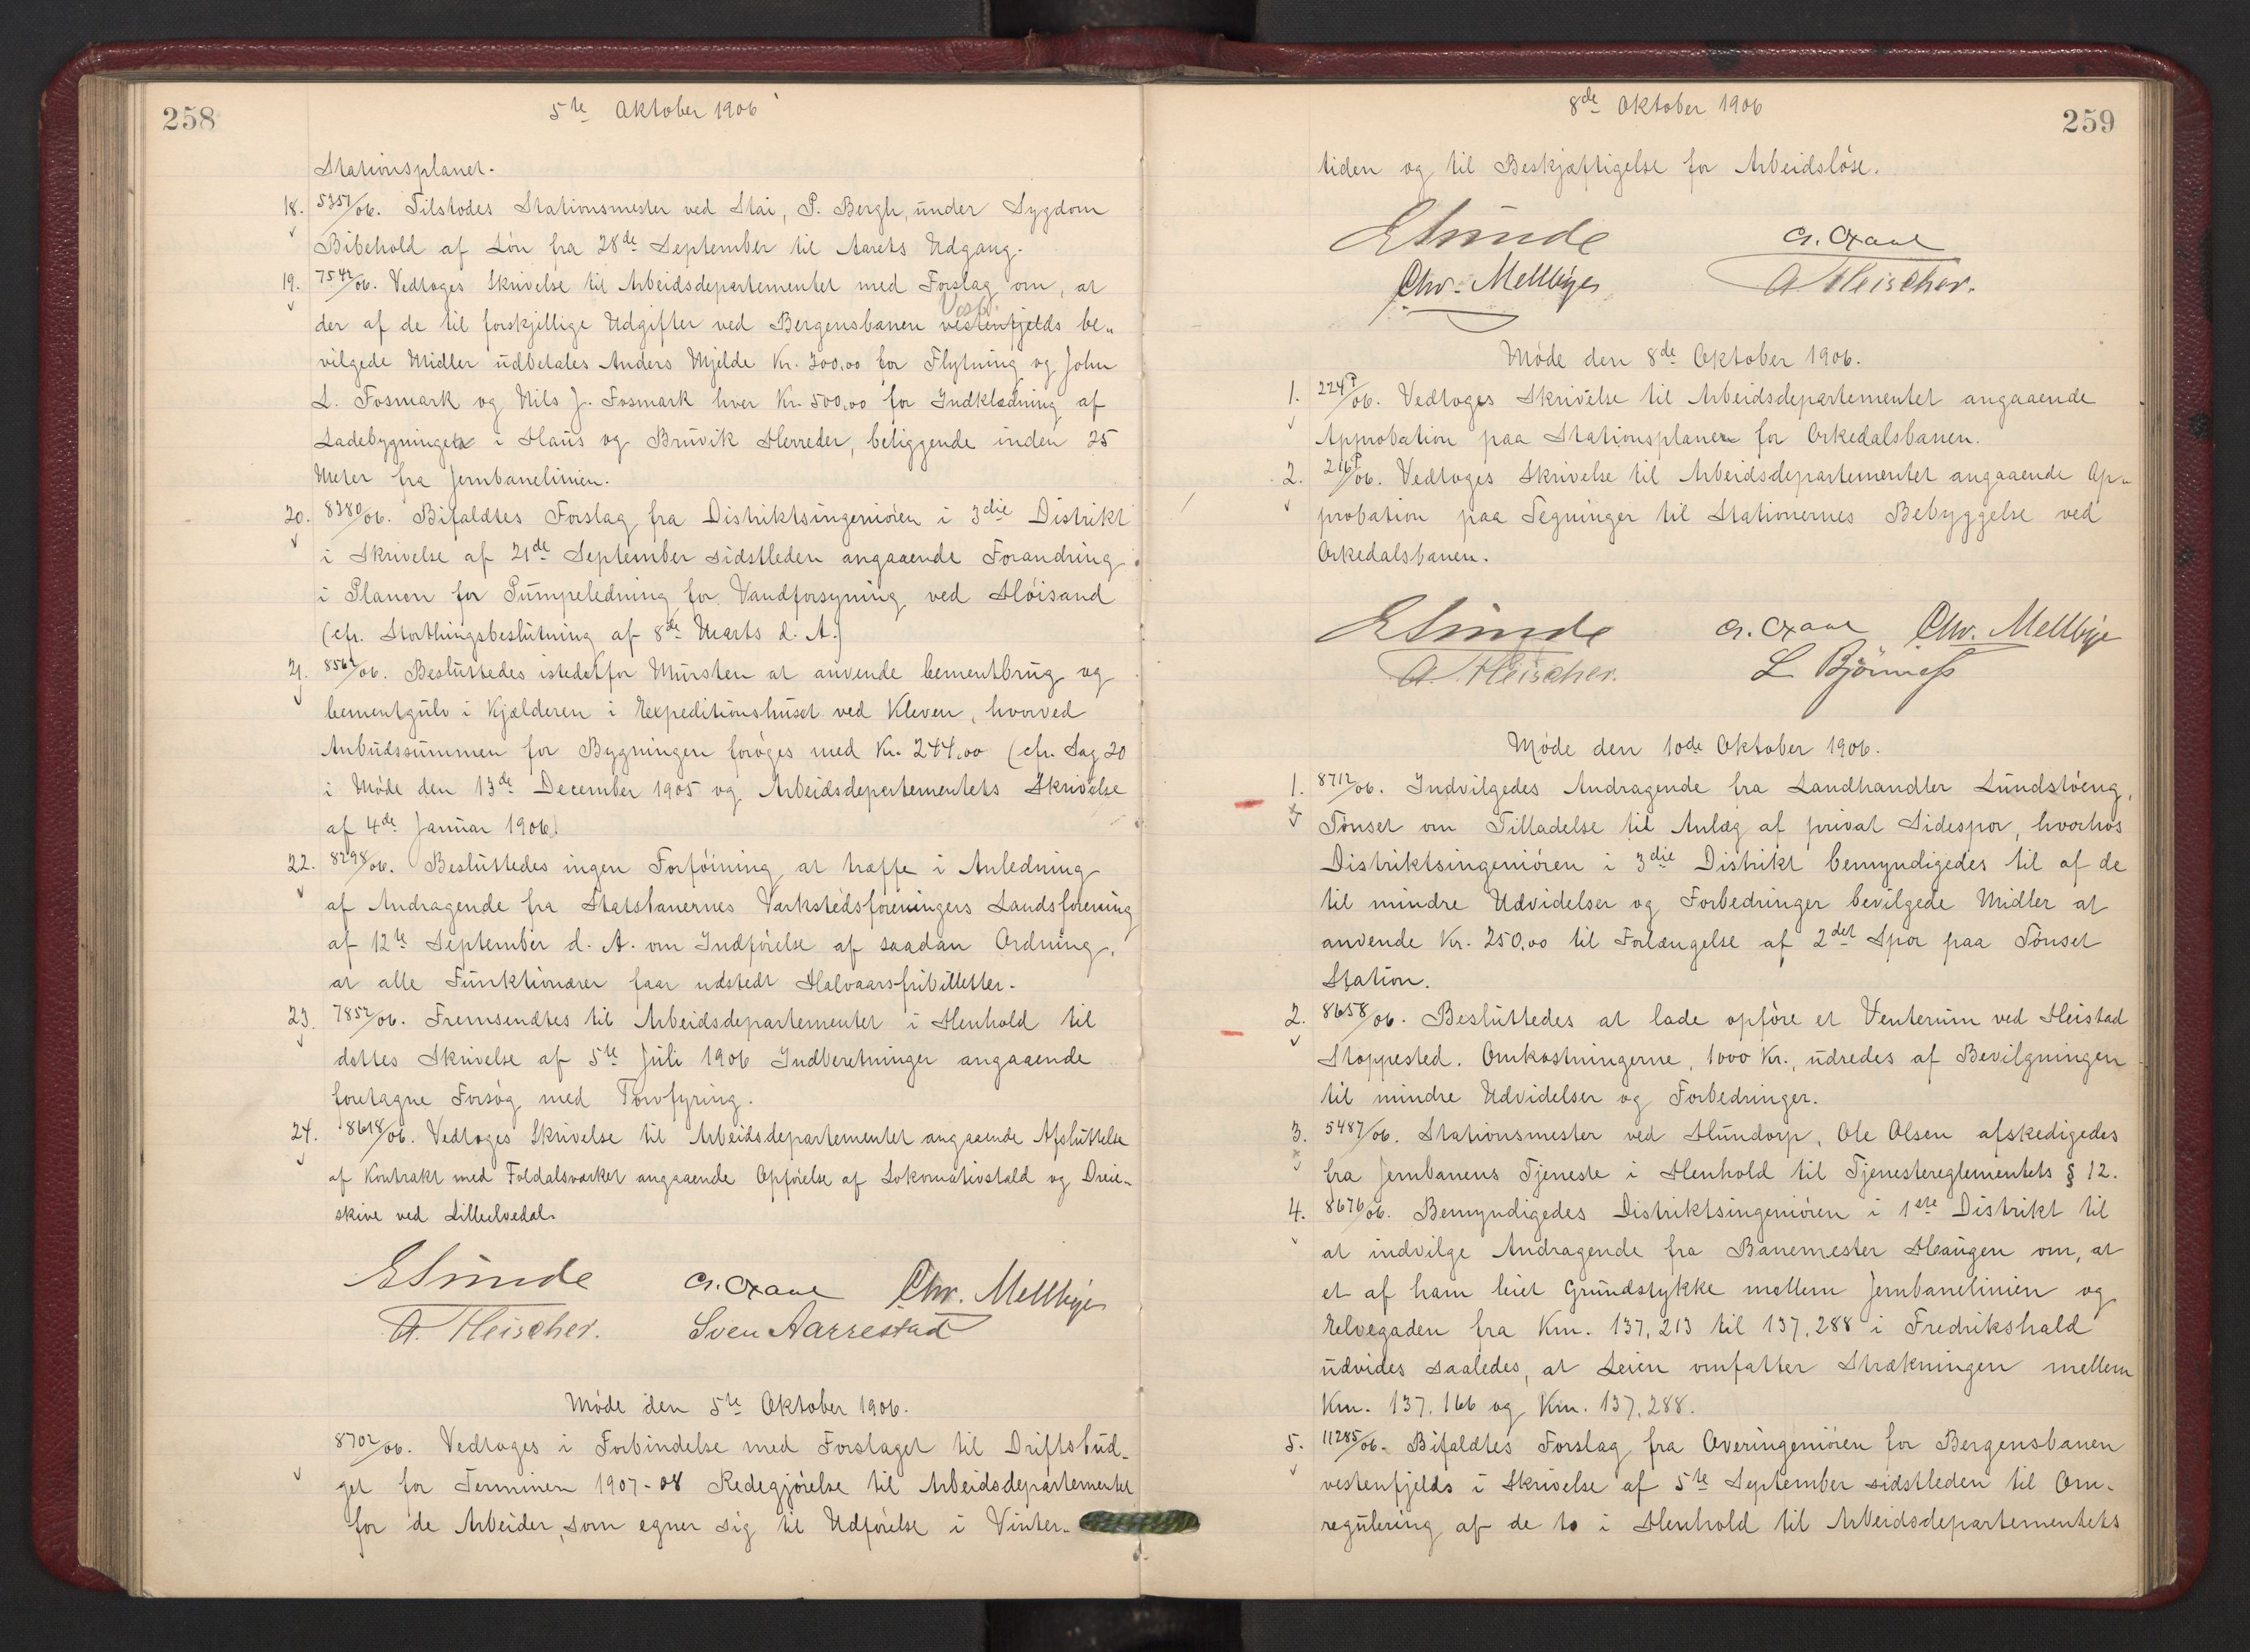 258
5te Oktober 1906
Stationsplanet.
18. 5357/06. Tilstodes Stationsmester ved Stai, P. Bergh, under Sygdom
Bibehold af Løn fra 28de September til Aarets Udgang.
19. 7542/06. Vedtoges Skrivelse til Arbeidsdepartementet med Forslag om, at
der af de til forskjellige Udgifter ved Bergensbanen vestenfjelds be-
vilgede Midler udbetales Anders Mjelde Kr. 300,00 for Flytning og John
L. Fosmark og Nils J. Fosmark hver Kr. 500,00 for Indklædning af
Ladebygninger i Haus og Bruvik Herreder, beliggende inden 25
Meter fra Jernbanelinien.
20. 8380/06. Bifaldtes Forslag fra Distriktsingeniøren i 3die Distrikt
i Skrivelse af 21de September sidstleden angaaende Forandring
i Planen for Pumpeledning for Vandforsyning ved Høisand
(cfr. Storthingsbeslutning af 8de Marts d. A.)
21. 8567/06. Besluttedes istedetfor Mursten at anvende Cementbrug og
Cementgulv i Kjælderen i Expeditionshuset ved Kleven, hvorved
Anbudssummen for Bygningen forøges med Kr. 244,00 (cfr. Sag 20
i Møde den 13de December 1905 og Arbeidsdepartementets Skrivelse
af 4de Januar 1906).
22. 8298/06. Besluttedes ingen Forføining at træffe i Anledning
af Andragende fra Statsbanernes Værkstedsforeningers Landsforening
af 12te September d. A. om Indførelse af saadan Ordning,
at alle Funktionærer faar udstedt Halvaarsfribilletter.
23. 7852/06. Fremsendtes til Arbeidsdepartementet i Henhold til
dettes Skrivelse af 5te Juli 1906 Indberetninger angaaende
foretagne Forsøg med Torvfyring.
24. 8618/06. Vedtoges Skrivelse til Arbeidsdepartementet angaaende Afsluttelse
af Kontrakt med Foldalsværket angaaende Opførelse af Lokomotivstald og Dreie-
skive ved Lilleelvedal.
E Sunde Chr. Mellbye
A. Fleischer. Sven Aarrestad
Møde den 5te Oktober 1906.
8702/06. Vedtoges i Forbindelse med Forslaget til Driftsbud-
get for Terminen 1907-08 Redegjørelse til Arbeidsdepartementet
for de Arbeider, som egner sig til Udførelse i Vinter-
8de Oktober 1906
259
tiden og til Beskjæftigelse for Arbeidsløse.
E Sunde
Chr. Mellbye A. Fleischer.
Møde den 8de Oktober 1906.
1. 224P/06. Vedtoges Skrivelse til Arbeidsdepartementet angaaende
Approbation paa Stationsplaner for Orkedalsbanen.
2. 216P/06. Vedtoges Skrivelse til Arbeidsdepartementet angaaende Ap-
probation paa Tegninger til Stationernes Bebyggelse ved
Orkedalsbanen.
E Sunde Chr. Mellbye
A. Fleischer. L Bjørness
Møde den 10de Oktober 1906.
1. 8712/06. Indvilgedes Andragende fra Landhandler Lundstøeng,
Tønset om Tilladelse til Anlæg af privat Sidespor, hvorhos
Distriktsingeniøren i 3die Distrikt bemyndigedes til af de
til mindre Udvidelser og Forbedringer bevilgede Midler at
anvende Kr. 250,00 til Forlængelse af 2det Spor paa Tønset
Station.
2. 8658/06. Besluttedes at lade opføre et Venterum ved Heistad
Stoppested. Omkostningerne, 1000 Kr., udredes af Bevilgningen
til mindre Udvidelser og Forbedringer.
3. 5487/06. Stationsmester ved Hundorp, Ole Olsen afskedigedes
fra Jernbanens Tjeneste i Henhold til Tjenestereglementets § 12.
4. 8676/06. Bemyndigedes Distriktsingeniøren i 1ste Distrikt til
at indvilge Andragende fra Banemester Haugen om, at
et af ham leiet Grundstykke mellem Jernbanelinien og
Elvegaden fra Km. 137,213 til 137,288 i Fredrikshald
udvides saaledes, at Leien omfatter Strækningen mellem
Km. 137,166 og Km. 137,288.
5. 11285/06. Bifaldtes Forslag fra Overingeniøren for Bergensbanen
vestenfjelds i Skrivelse af 5te September sidstleden til Om-
regulering af de to i Henhold til Arbeidsdepartementets